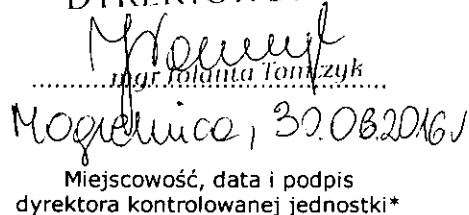 mgr Jolanta Tomczyk
Mogielnica, 30.08.2016r
Miejscowość, data i podpis
dyrektora kontrolowanej jednostki*